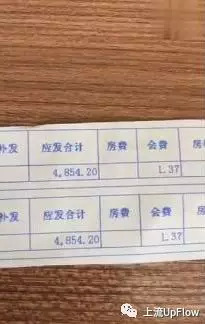 补发 应发合计 房费 会费
4,854.20 1.37
补发 应发合计 房费 会费
4,854.20 1.37
上流UpFlow